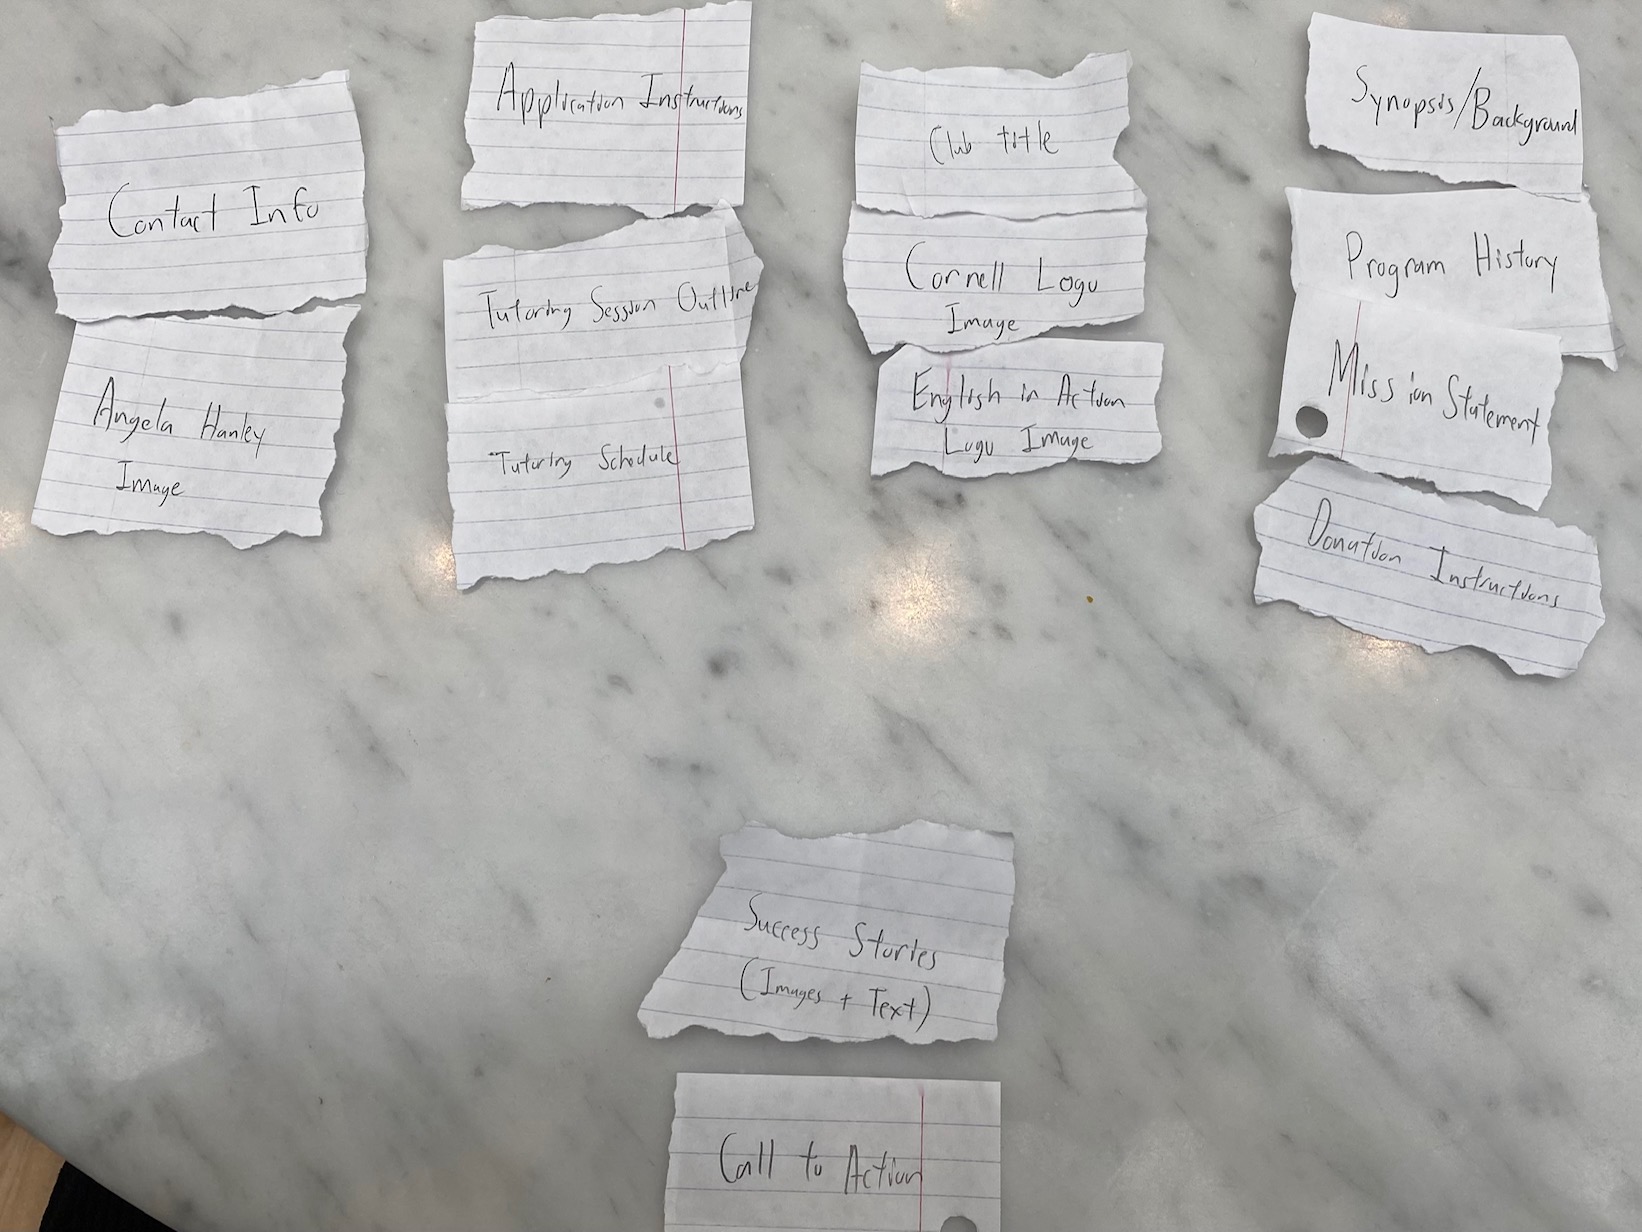 Contact Info
Angela Hanley
Image
Application Instructions
Tutoring Session Outline
Tutoring Schedule
Club title
Cornell Logo
Image
English in Action
Logo Image
Synopsis/Background
Program History
Mission Statement
Donation Instructions
Success Stories
(Images + Text)
Call to Action